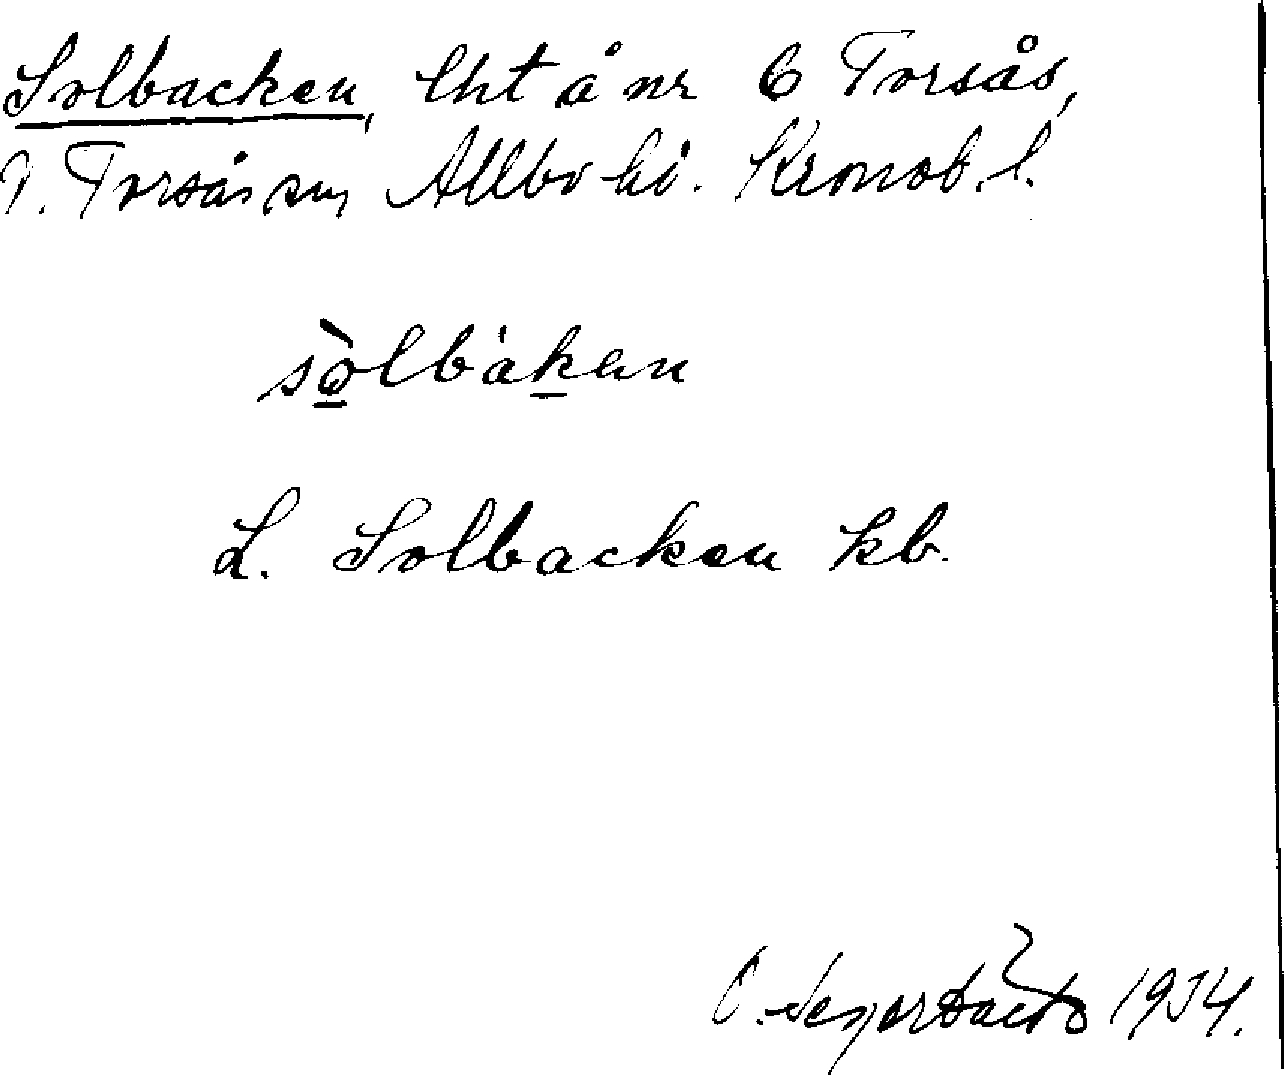 Solbacken, lht å nr 6 Torsås,
V. Torsås sn, Allbo hd. Kronob. l.
sòlbàkan
L. Solbacken kb.
1934.